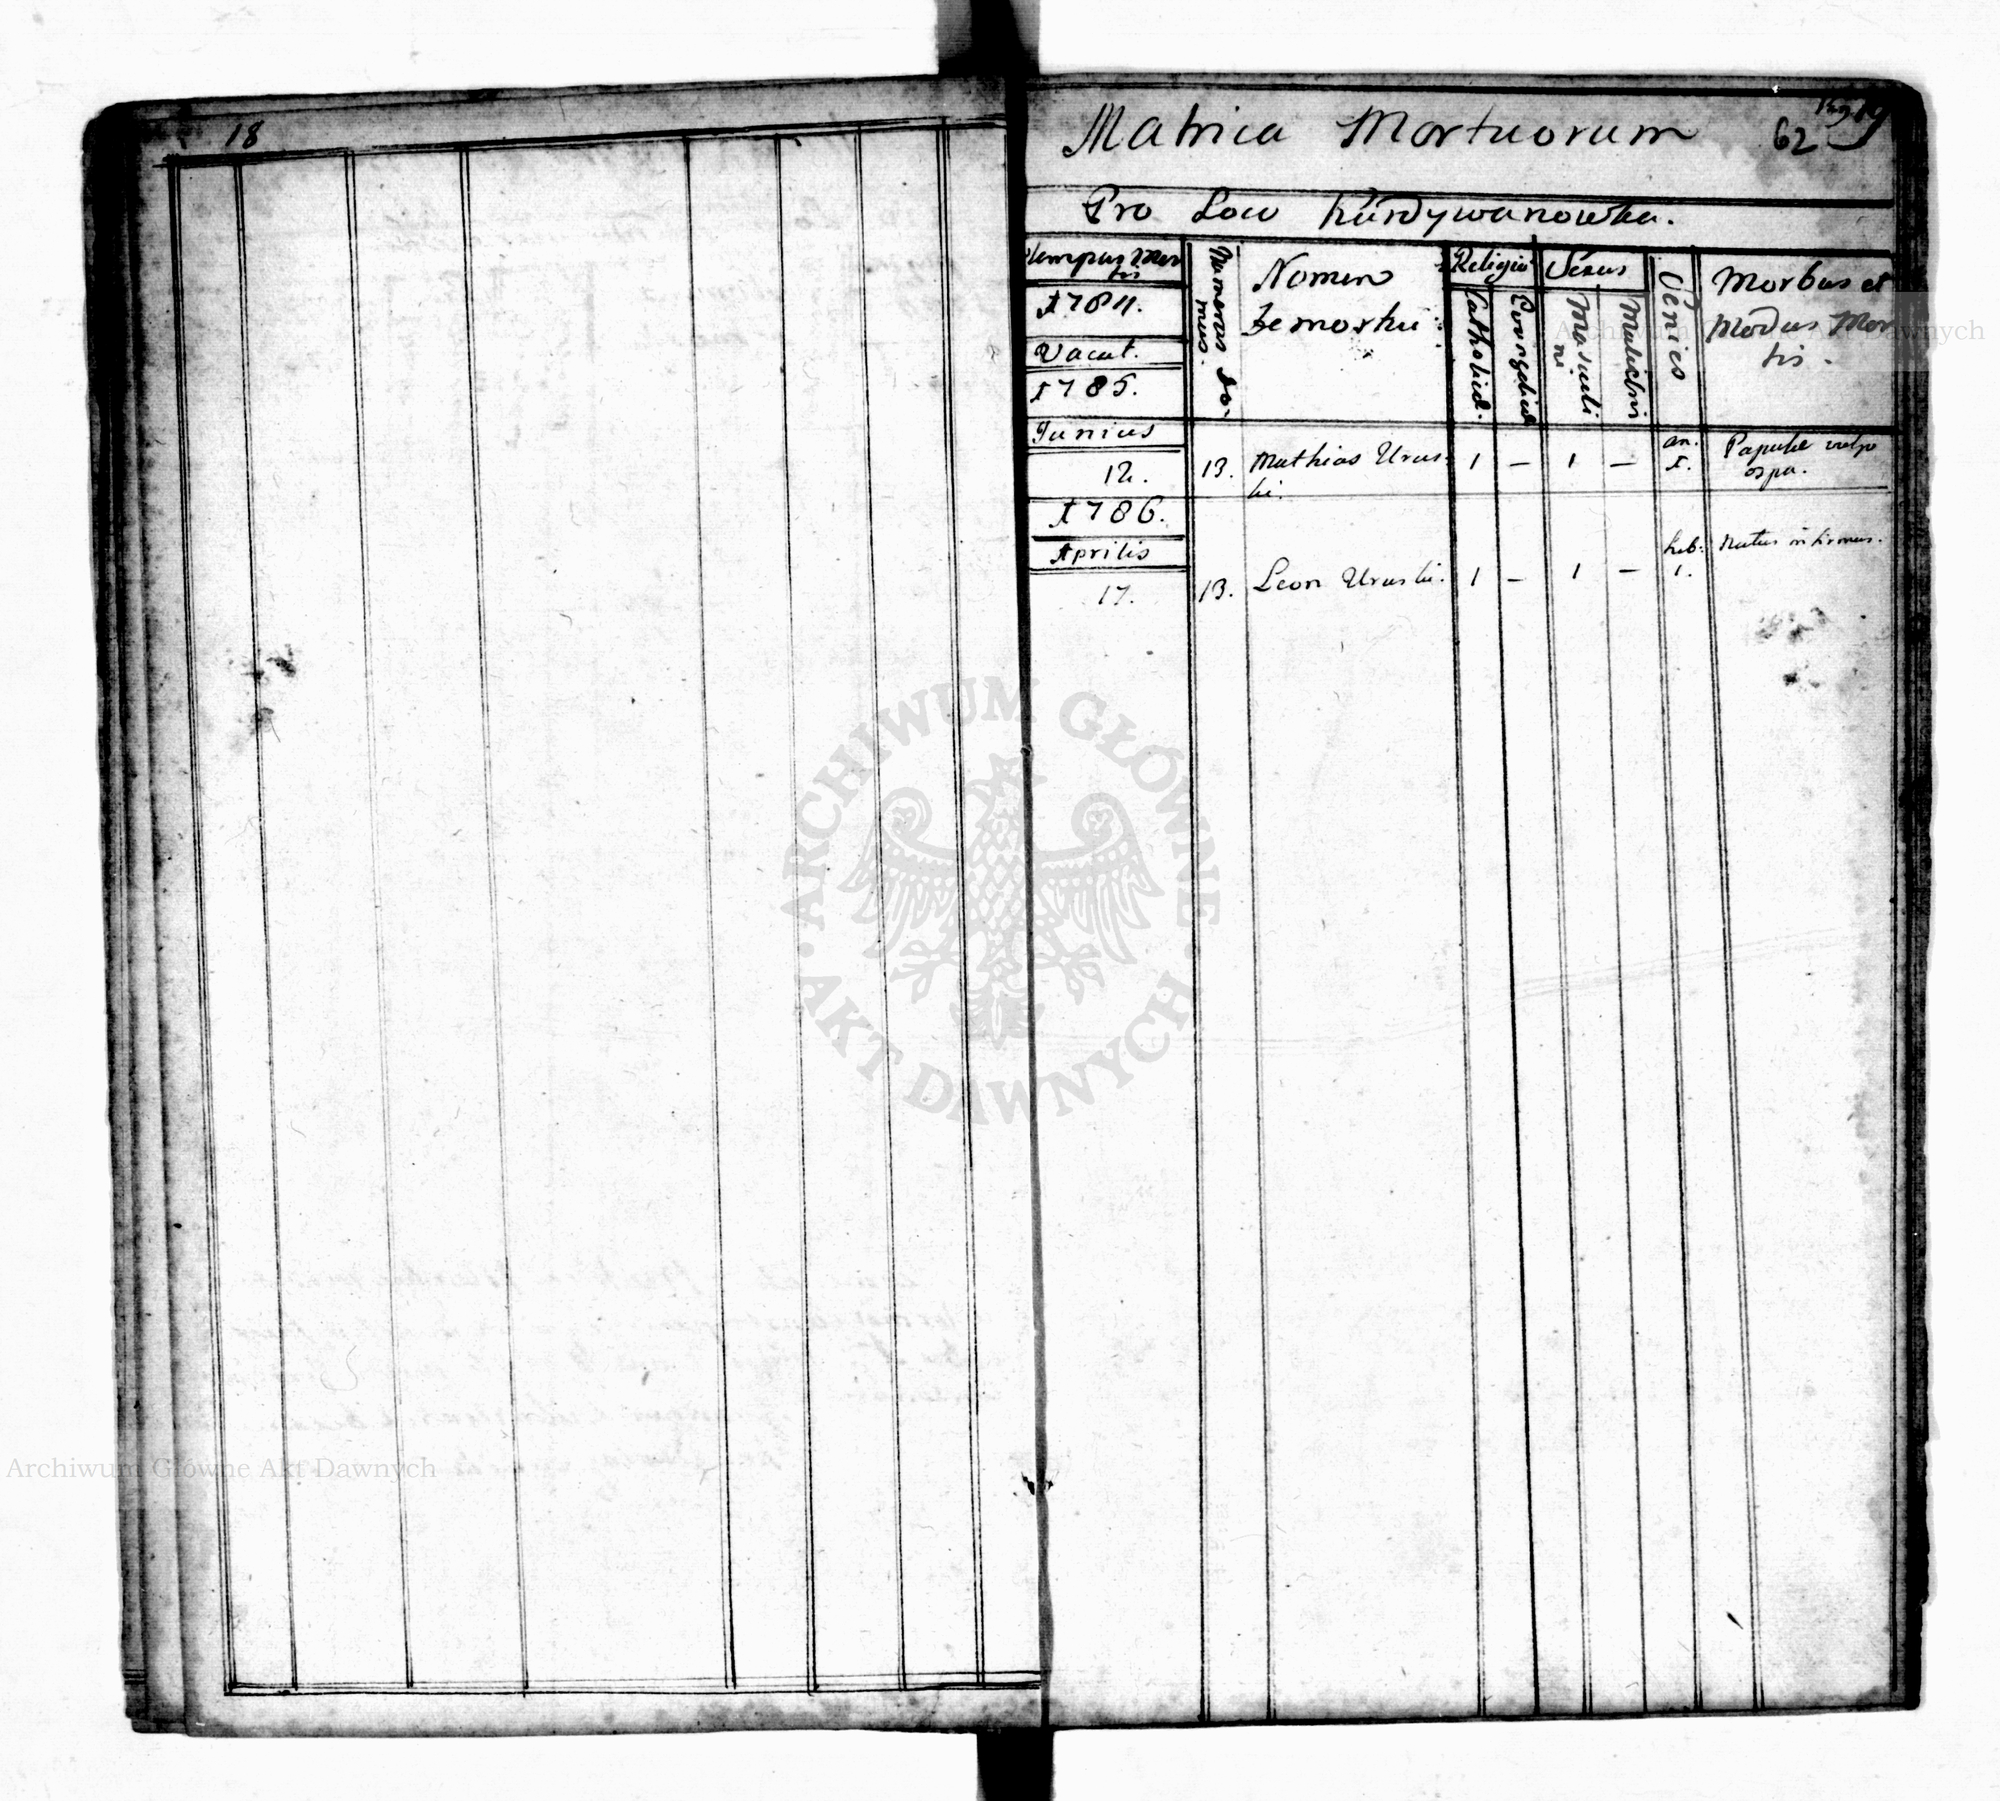 18
Matrica Mortuorum
62
Pag 19
Pro Loco Kurdywanowka.
Tempus Mor
tis
Numerus Do-
mus.
Nomen
Demortui
Religio
Catholica.
Sexus
Masculi
ni
Muliebris
Senies
Morbus et
Modus Mor
tis.
1784.
Vacat.
1785.
Junius
12. 13. Mathias Urus- 1 – 1 – an. 1. Papulae vulgo
ki. ospa.
1786.
Aprilis
17. 13. Leon Uruski. 1 – 1 – heb: 1. Natus infirmus.
ARCHIWUM GŁÓWNE
AKT DAWNYCH
Archiwum Główne Akt Dawnych
Archiwum Główne Akt Dawnych